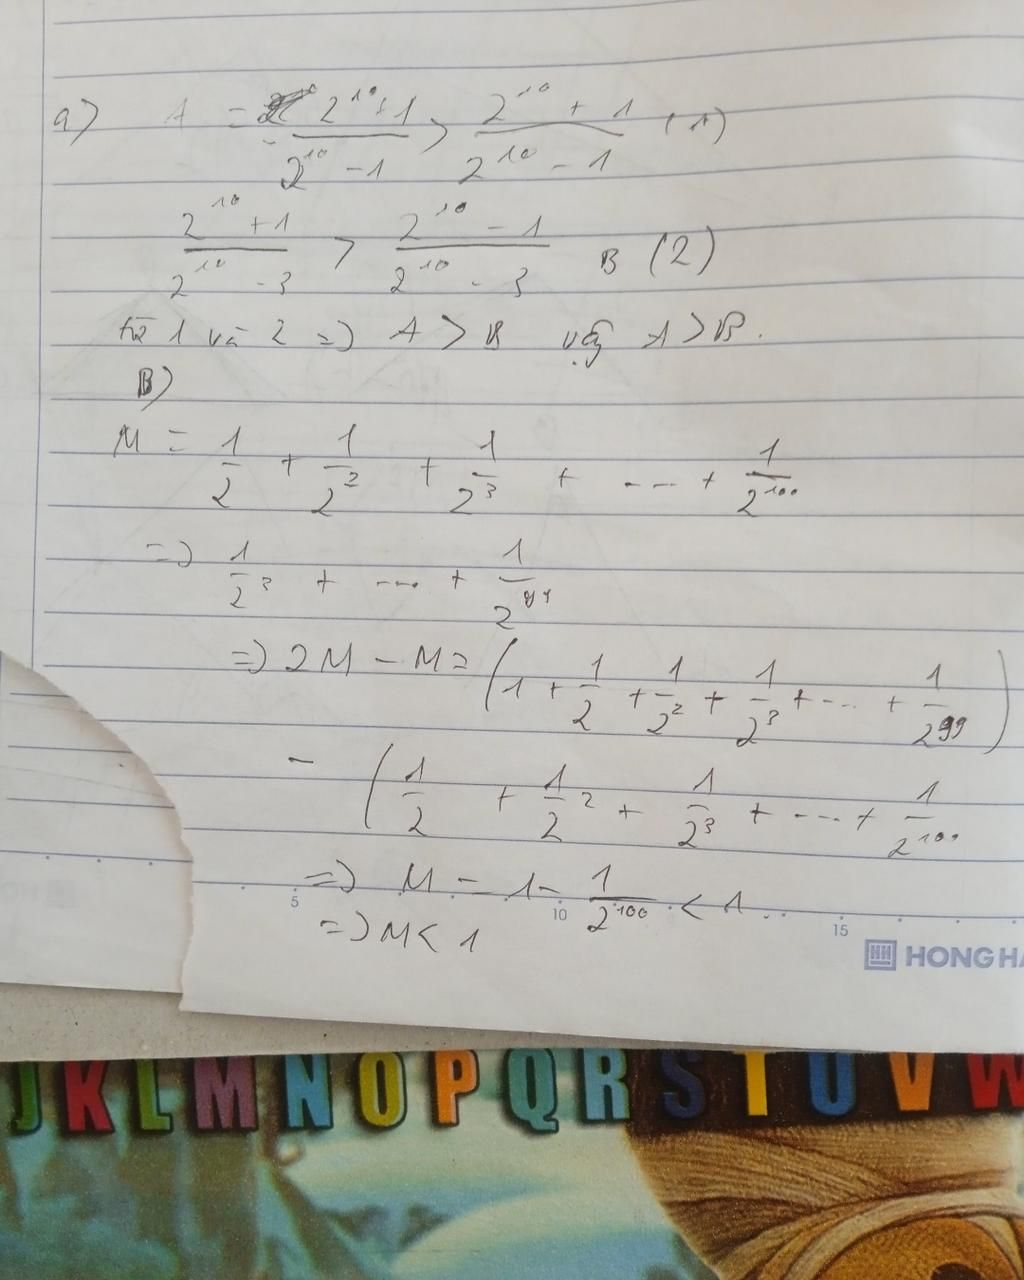 a) A = 2^10 + 1 / 2^10 - 1 > 2^10 + 1 / 2^10 - 1 (1)
2^10 + 1 / 2^10 - 3 > 2^10 - 1 / 2^10 - 3 B (2)
từ 1 và 2 => A > B vậy A > B.
B)
M = 1/2 + 1/2^2 + 1/2^3 + ... + 1/2^100
=> 1/2^3 + ... + 1/2^99
=> 2M - M = (1 + 1/2 + 1/2^2 + 1/2^3 + ... + 1/2^99)
- (1/2 + 1/2^2 + 1/2^3 + ... + 1/2^100
=> M = 1 - 1/2^100 < 1.
=> M < 1
5 10 15
HH HONG HA
J K L M N O P Q R S T U V W